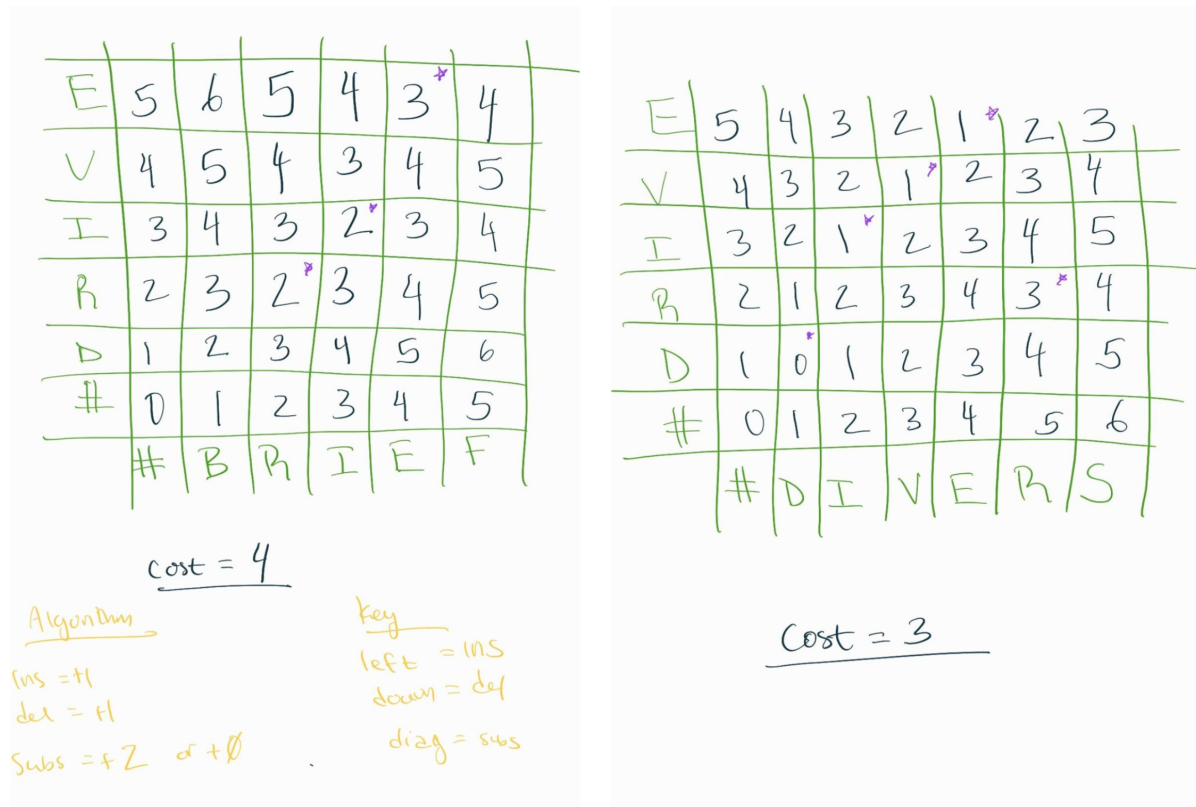 E 5 6 5 4 3* 4
V 4 5 4 3 4 5
I 3 4 3 2* 3 4
R 2 3 2* 3 4 5
D 1 2 3 4 5 6
# 0 1 2 3 4 5
# B R I E F
Cost = 4
Algorithm
Ins = +1
del = +1
Subs = +2 or +0
Key
left = ins
down = del
diag = subs
E 5 4 3 2 1* 2 3
V 4 3 2 1* 2 3 4
I 3 2 1* 2 3 4 5
R 2 1 2 3 4 3* 4
D 1 0* 1 2 3 4 5
# 0 1 2 3 4 5 6
# D I V E R S
Cost = 3